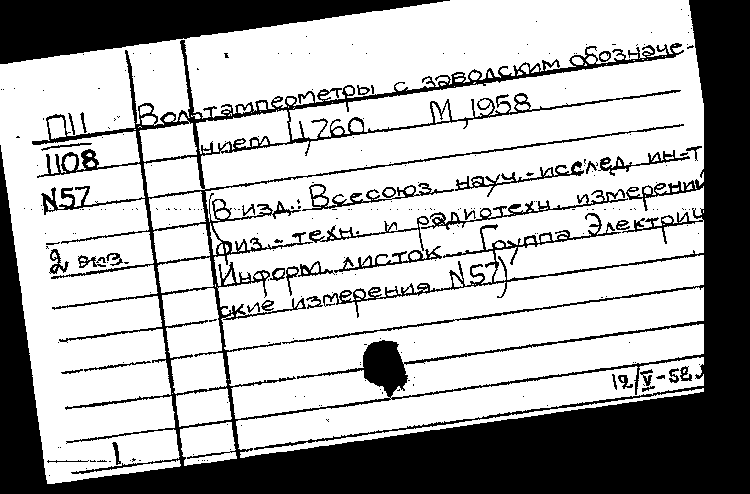 П11
1108
N57
2 экз.
Вольтамперометры с заводским обозначе-
нием Ц,760. М,1958.
(В изд.: Всесоюз. науч.-исслед. ин-т
физ.-техн. и радиотехн. измерений
Информ. листок... Группа Электриче
ские измерения. N57)
12/V-58
1